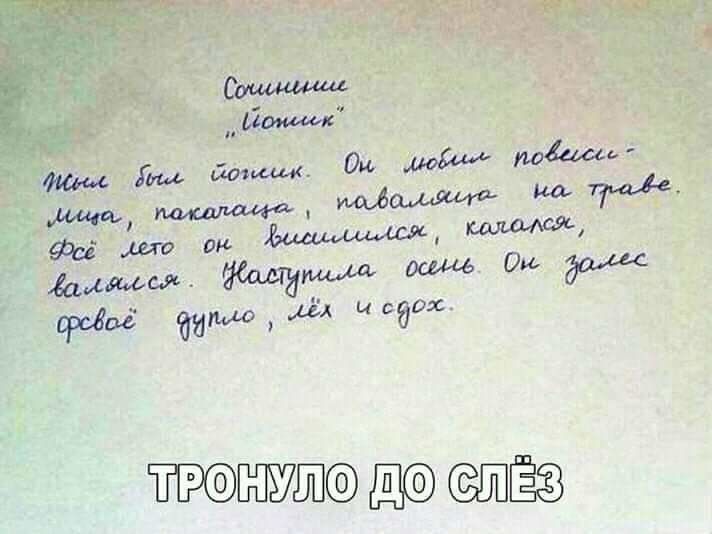 Сочинение
„Йожик"
Жыл был йожик. Он любил повиси-
лица, покачаца, паваляца на траве.
Фсё лето он висилился, качался,
валялся. Наступила осень. Он залес
фсваё дупло, лёх и сдох.
ТРОНУЛО ДО СЛЁЗ